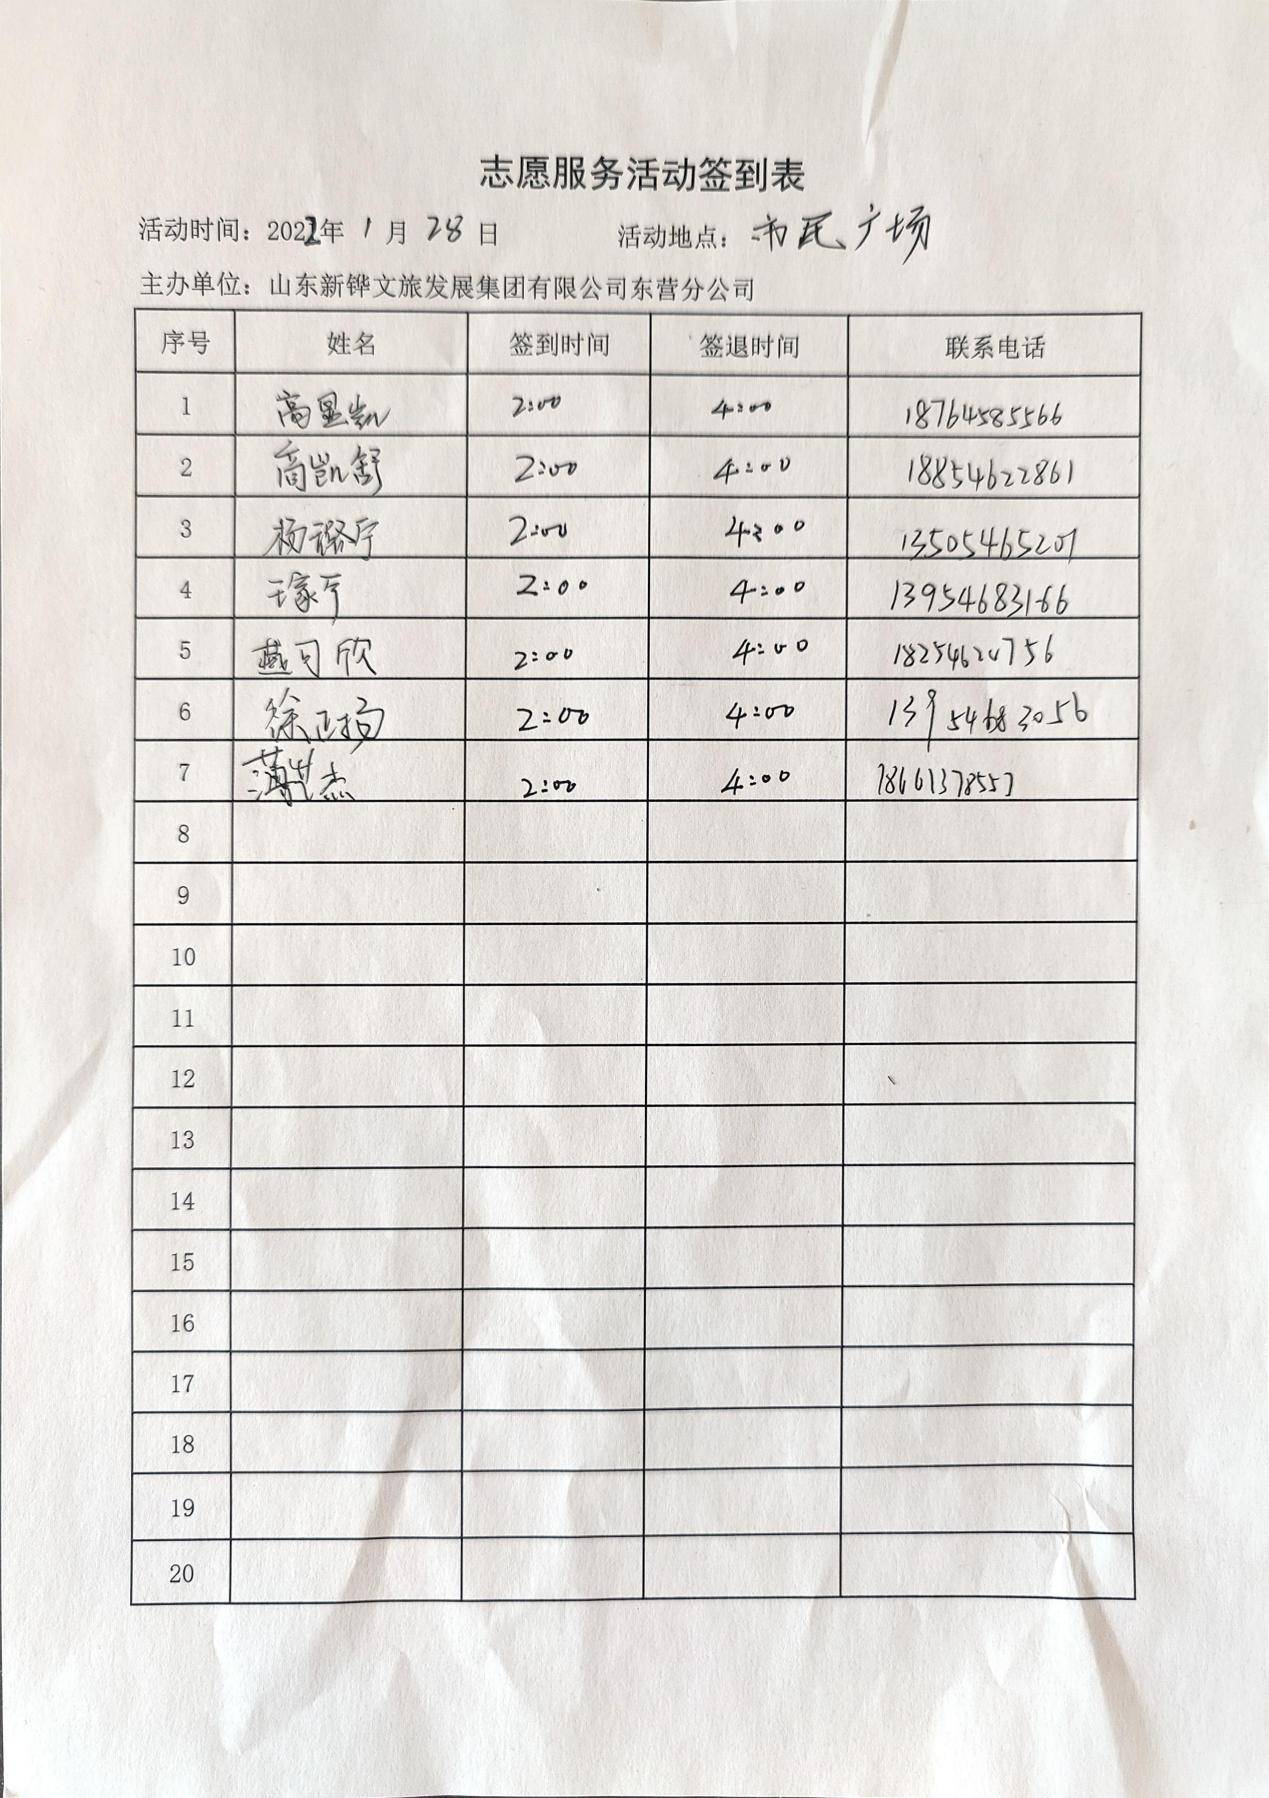 志愿服务活动签到表
活动时间：2022年 1 月 28 日 活动地点：市民广场
主办单位：山东新铧文旅发展集团有限公司东营分公司
序号 姓名 签到时间 签退时间 联系电话
1 高显凯 2:00 4:00 18764585566
2 高凯舒 2:00 4:00 18854622861
3 杨璐宁 2:00 4:00 13505465201
4 王家亨 2:00 4:00 13954683166
5 戴习欣 2:00 4:00 18254620756
6 徐正扬 2:00 4:00 13954683056
7 薄世杰 2:00 4:00 18661378557
8
9
10
11
12
13
14
15
16
17
18
19
20